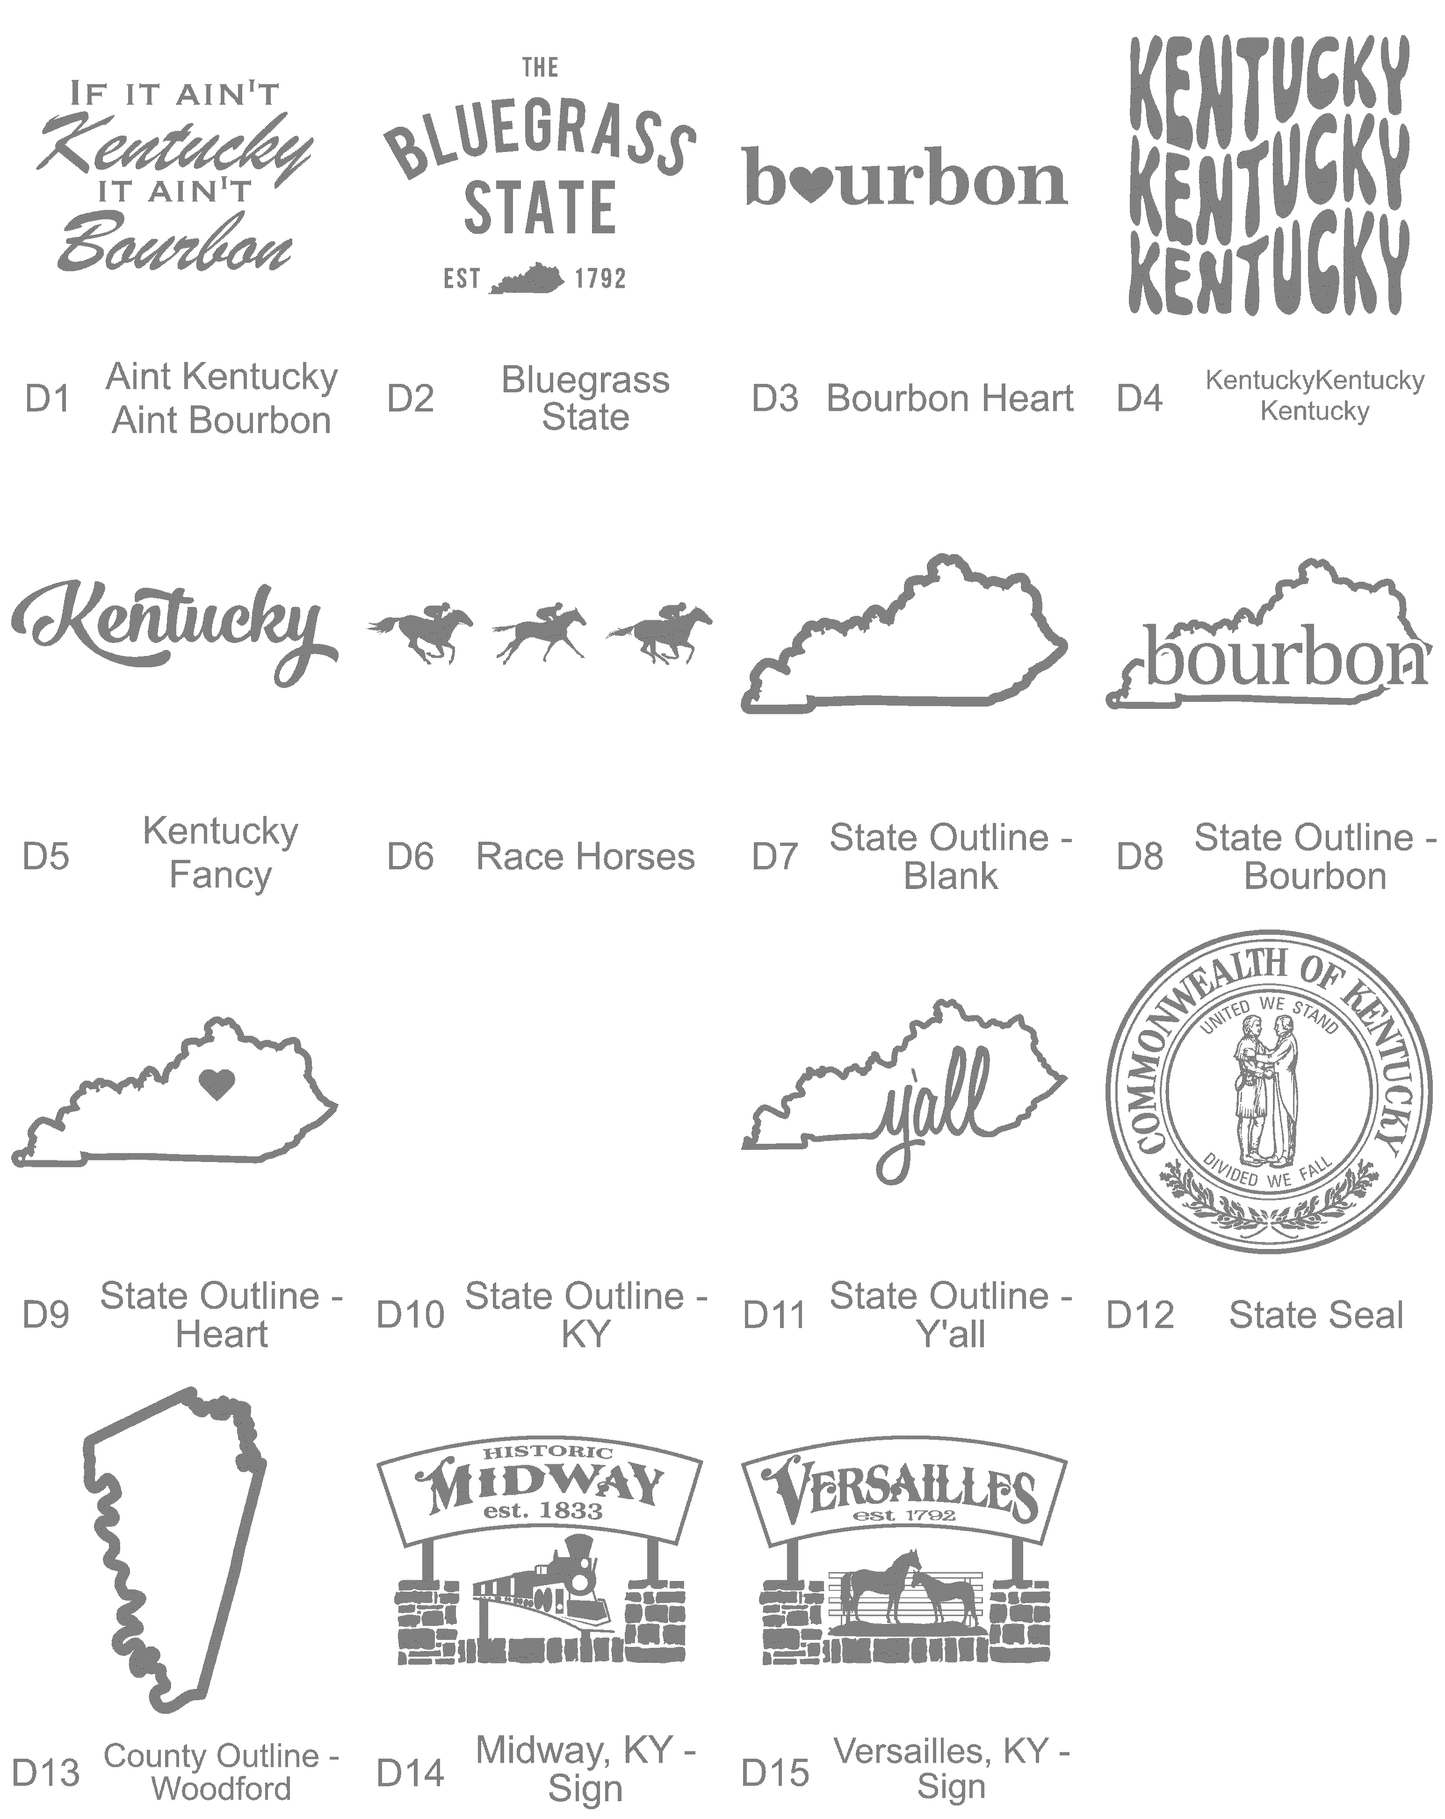 IF IT AIN'T
Kentucky
IT AIN'T
Bourbon
THE
BLUEGRASS
STATE
EST 1792
b♥urbon
KENTUCKY
KENTUCKY
KENTUCKY
D1 Aint Kentucky
Aint Bourbon
D2 Bluegrass
State
D3 Bourbon Heart
D4 KentuckyKentucky
Kentucky
Kentucky
bourbon
D5 Kentucky
Fancy
D6 Race Horses
D7 State Outline -
Blank
D8 State Outline -
Bourbon
y'all
COMMONWEALTH OF KENTUCKY
UNITED WE STAND
DIVIDED WE FALL
D9 State Outline -
Heart
D10 State Outline -
KY
D11 State Outline -
Y'all
D12 State Seal
HISTORIC
MIDWAY
est. 1833
VERSAILLES
est 1792
D13 County Outline -
Woodford
D14 Midway, KY -
Sign
D15 Versailles, KY -
Sign